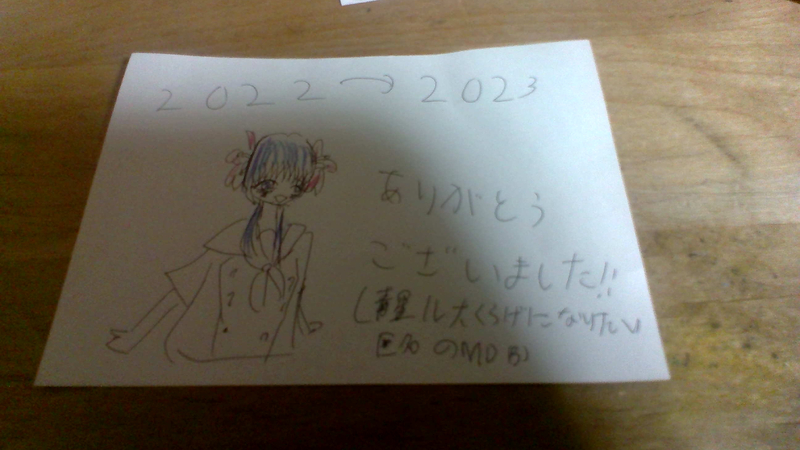 2022→2023
ありがとう
ございました!!
くらげになりたい
のMD